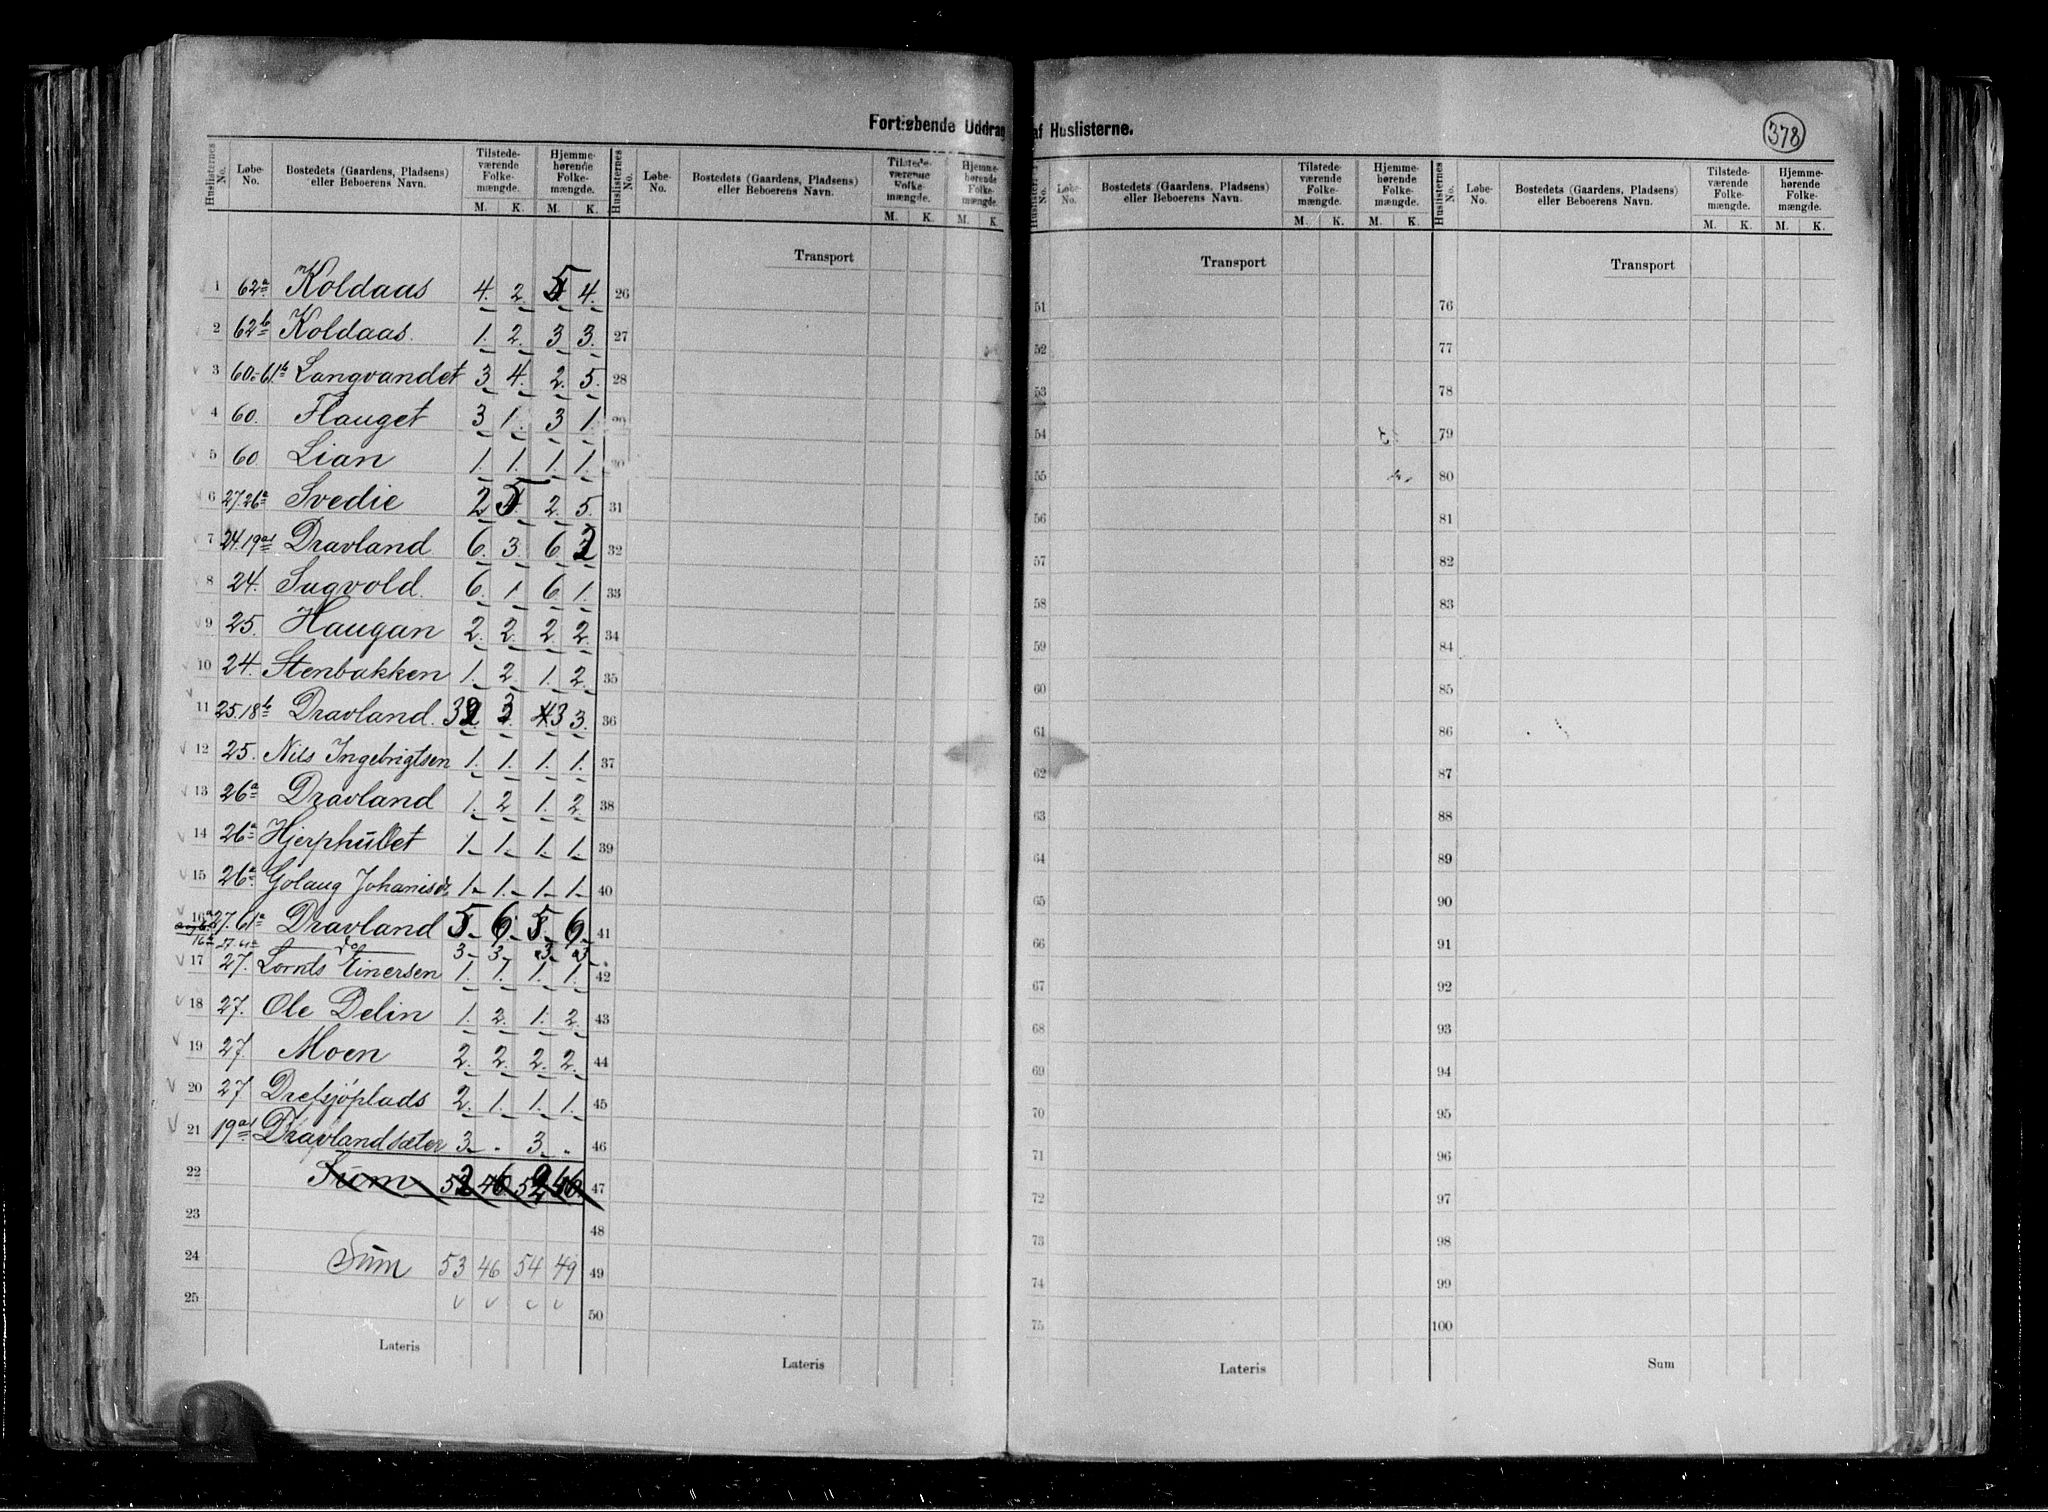 Fortløbende Uddrag af Huslisterne.
378
Huslisternes No. Løbe-No. Bostedets (Gaardens, Pladsens) eller Beboerens Navn. Tilstedeværende Folkemængde. M. K. Hjemmehørende Folkemængde. M. K.
Huslisternes No. Løbe-No. Bostedets (Gaardens, Pladsens) eller Beboerens Navn. Tilstedeværende Folkemængde. M. K. Hjemmehørende Folkemængde. M. K.
Løbe-No. Bostedets (Gaardens, Pladsens) eller Beboerens Navn. Tilstedeværende Folkemængde. M. K. Hjemmehørende Folkemængde. M. K.
Huslisternes No. Løbe-No. Bostedets (Gaardens, Pladsens) eller Beboerens Navn. Tilstedeværende Folkemængde. M. K. Hjemmehørende Folkemængde. M. K.
Transport Transport Transport
1 62a Koldaas 4. 2. 5 4. 26 51 76
2 62b Koldaas. 1. 2. 3 3. 27 52 77
3 60.-61b Langvandet 3 4. 2. 5. 28 53 78
4 60. Flauget 3 1. 3 1. 29 54 79
5 60 Lian 1. 1. 1. 1. 30 55 80
6 27.26a Svedie 2 5 2. 5. 31 56 81
7 24.19a Dravland 6. 3. 6 2 32 57 82
8 24. Sagvold. 6. 1 6 1. 33 58 83
9 25. Haugan 2. 2. 2. 2. 34 59 84
10 24. Stenbakken 1. 2. 1. 2. 35 60 85
11 25.18b Dravland. 3 3. 3 3. 36 61 86
12 25. Nils Ingebrigtsen 1. 1. 1. 1. 37 62 87
13 26a Dravland 1. 2 1. 2. 38 63 88
14 26a Hjerphullet 1. 1. 1. 1. 39 64 89
15 26a Golaug Johanisdr 1. 1. 1. 1. 40 65 90
16a 27.61a Dravland 5 6 5 6. 41 66 91
16b 27.61a do 3 3 3 3
17 27. Lornts Einersen 1. 1. 1. 1. 42 67 92
18 27. Ole Delin 1. 2. 1. 2. 43 68 93
19 27. Moen 2. 2. 2. 2. 44 69 94
20 27 Drefsjöplads 2. 1. 1. 1. 45 70 95
21 19a Dravlandsæter 3 - 3 - 46 71 96
22 Sum 52 46 52 46 47 72 97
23 48 73 98
24 Sum 53 46 54 49 49 74 99
25 50 75 100
Lateris Lateris Lateris Sum